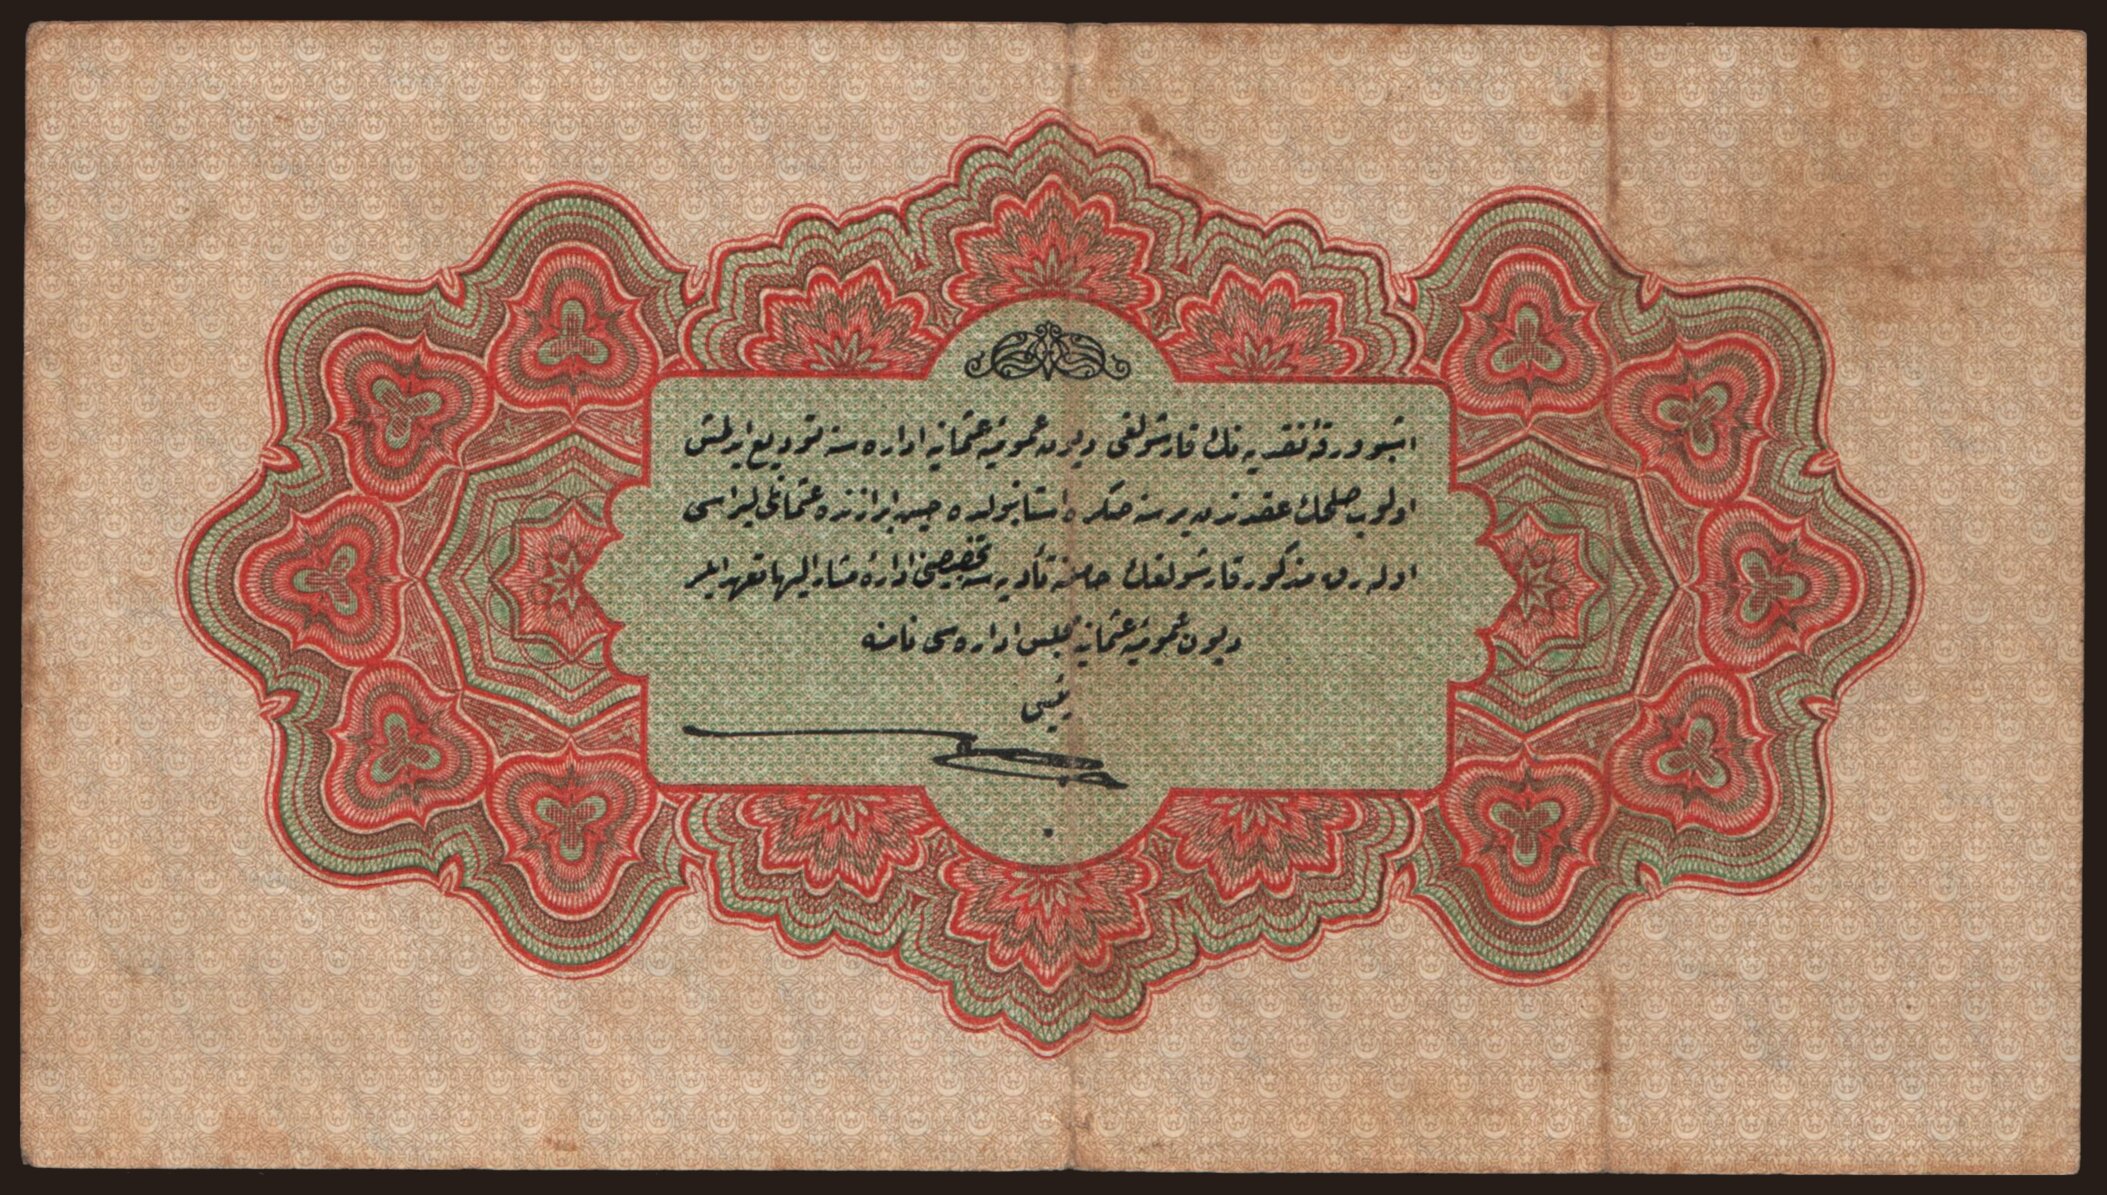 اشبو ورقهٔ نقدیه نك قارشولغی دیون عمومیهٔ عثمانیه اداره سنه تودیع ایدلمش
اولوب صلحك عقدندن بر سنه صكره استانبولده حین ابرازنده عثمانلی لیراسی
اوله رق مذكور قارشولغك حامله تأدیه سنه تخصیصنی ادارهٔ مشار الیها تعهد ایلر
دیون عمومیهٔ عثمانیه مجلس اداره سی نامنه
رئیسی